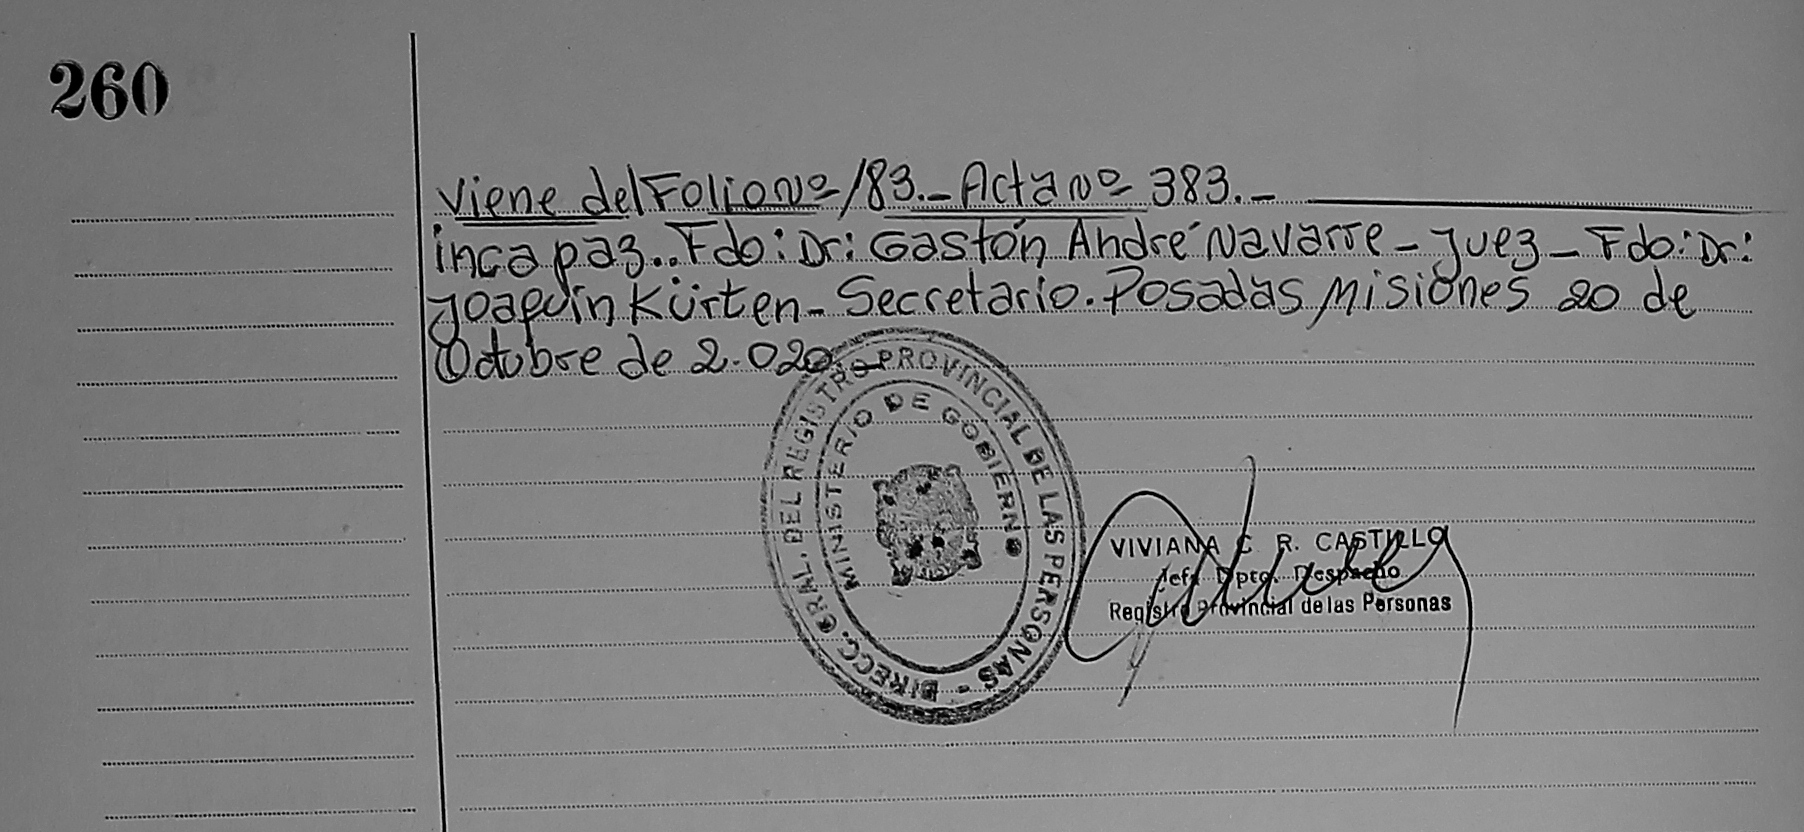 260
Viene del Folio Nº 183.- Acta Nº 383.-
incapaz.. Fdo: Dr: Gastón André Navarre - Juez - Fdo: Dr:
Joaquín Kürten - Secretario. Posadas Misiones 20 de
Octubre de 2.020.-
DIRECC. GRAL. DEL REGISTRO PROVINCIAL DE LAS PERSONAS -
MINISTERIO DE GOBIERNO
VIVIANA C. R. CASTILLO
Jefa Dpto. Despacho
Registro Provincial de las Personas